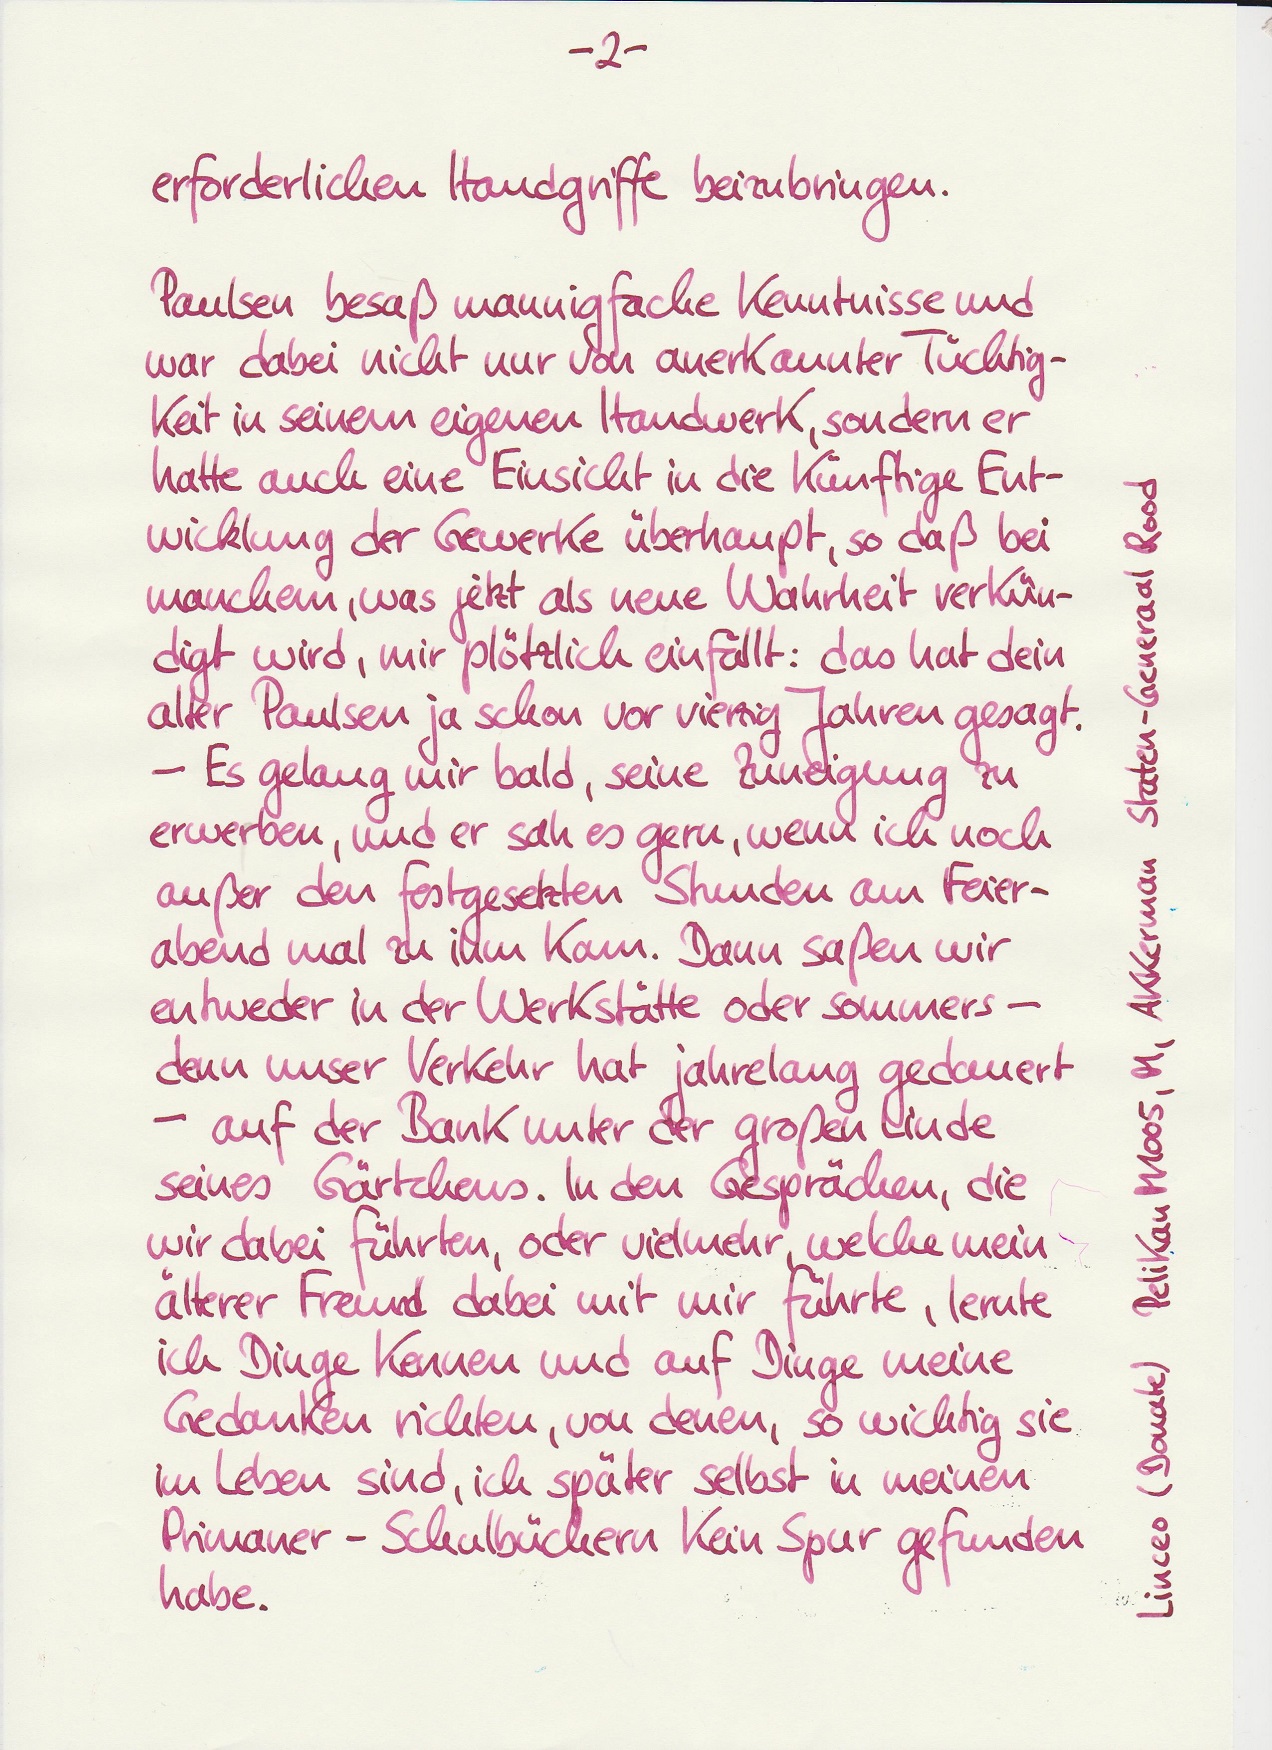 -2-
erforderlichen Handgriffe beizubringen.
Paulsen besaß mannigfache Kenntnisse und
war dabei nicht nur von anerkannter Tüchtig-
keit in seinem eigenen Handwerk, sondern er
hatte auch eine Einsicht in die künftige Ent-
wicklung der Gewerke überhaupt, so daß bei
manchem, was jetzt als neue Wahrheit verkün-
digt wird, mir plötzlich einfällt: das hat dein
alter Paulsen ja schon vor vierzig Jahren gesagt.
— Es gelang mir bald, seine Zuneigung zu
erwerben, und er sah es gern, wenn ich noch
außer den festgesetzten Stunden am Feier-
abend mal zu ihm kam. Dann saßen wir
entweder in der Werkstätte oder sommers —
denn unser Verkehr hat jahrelang gedauert
— auf der Bank unter der großen Linde
seines Gärtchens. In den Gesprächen, die
wir dabei führten, oder vielmehr, welche mein
älterer Freund dabei mit mir führte, lernte
ich Dinge kennen und auf Dinge meine
Gedanken richten, von denen, so wichtig sie
im Leben sind, ich später selbst in meinen
Primaner-Schulbüchern kein Spur gefunden
habe.
Linceo (Donate) Pelikan M1005, M, Akkerman Staten-Generaal Rood